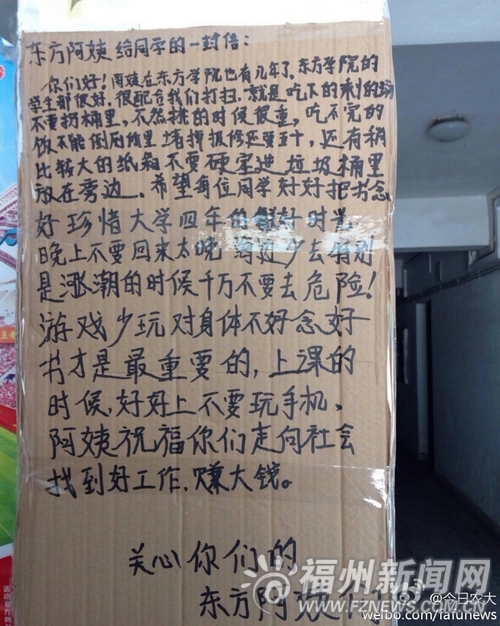 东方阿姨给同学的一封信：
你们好！阿姨在东方学院也有几年了。东方学院的
学生都很好，很配合我们打扫，就是吃下的剩的汤
不要扔桶里，不然挑的时候很重，吃不完的
饭不能倒厕所里 堵掉扳修还要五十，还有稍
比较大的纸箱不要硬塞进垃圾桶里
放在旁边。希望每位同学好好把书念
好珍惜大学四年的美好时光
晚上不要回来太晚 海边少去特别
是涨潮的时候千万不要去危险！
游戏少玩对身体不好念好
书才是最重要的，上课的
时候，好好上不要玩手机、
阿姨祝福你们走向社会
找到好工作，赚大钱。
关心你们的
东方阿姨
福州新闻网
WWW.FZNEWS.COM.CN
@今日农大
weibo.com/fafunews